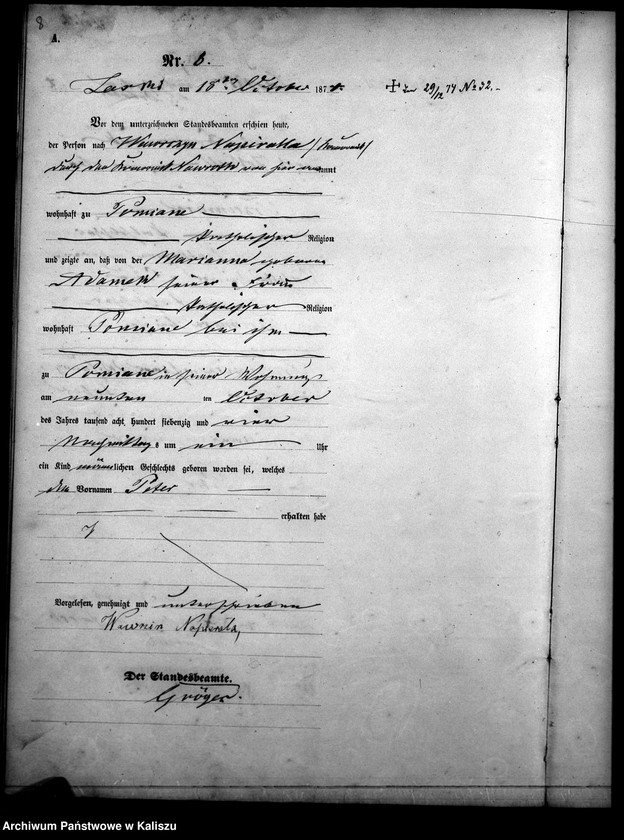 8
A.
Nr. 6.
Laski am 13ten October 1874. + den 29/12 74 No 32.
Vor dem unterzeichneten Standesbeamten erschien heute,
der Person nach Wawrzyn Napieralla
durch den Nawroth von hier anerkannt
wohnhaft zu Pomiane
katholischer Religion
und zeigte an, daß von der Marianna geborene
Adamek seiner Frau
katholischer Religion
wohnhaft Pomiane bei ihm
zu Pomiane in seiner Wohnung
am neunten ten October
des Jahres tausend acht hundert siebenzig und vier
Nachmittags um ein Uhr
ein Kind männlichen Geschlechts geboren worden sei, welches
den Vornamen Peter
erhalten habe
Vorgelesen, genehmigt und unterschrieben
Wawrzin Napierala,
Der Standesbeamte.
Gröger.
Archiwum Państwowe w Kaliszu